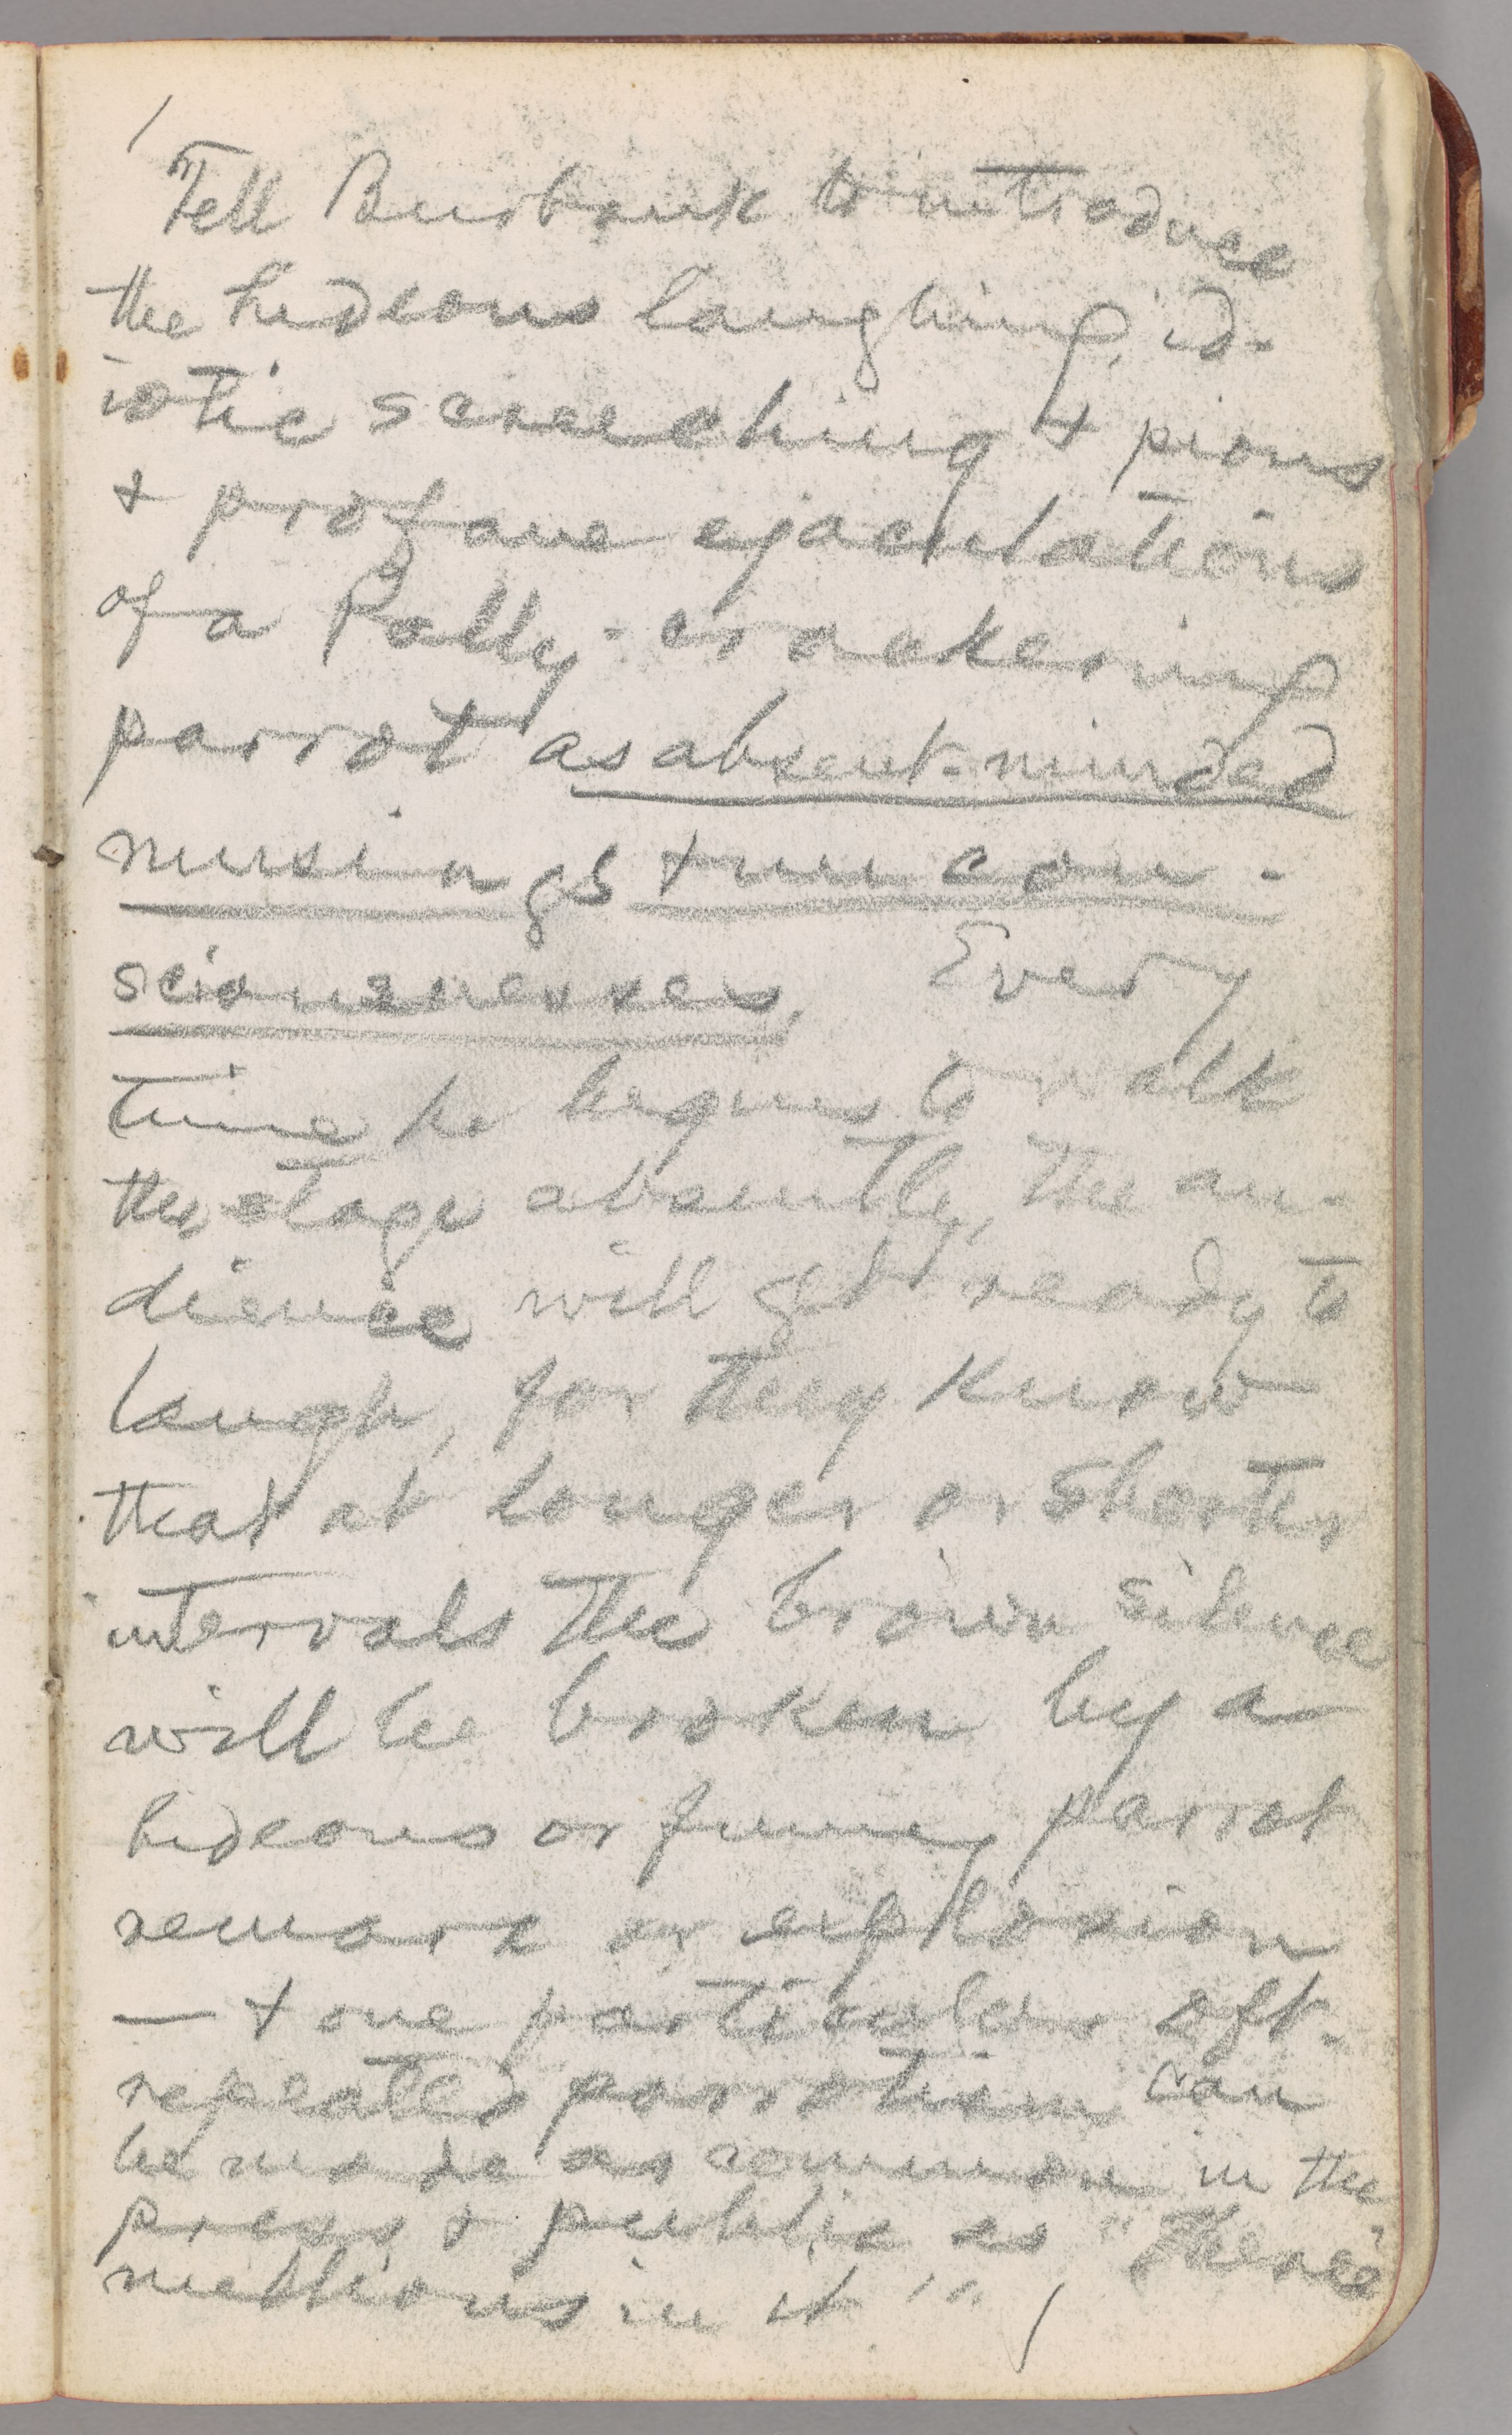 Tell Burbank to introduce
the hideous laughing, id-
iotic screeching & pious
& profane ejaculations
of a Polly-crackering
parrot as absent-minded
musings & uncon-
sciousnesses. Every
time he begins to walk
the stage absently, the au-
dience will get ready to
laugh, for they know
that at longer or shorter
intervals the brown silence
will be broken by a
hideous or funny parrot
remark or explosion
— & one particular oft-
repeated parrotism can
be made as common in the
press & public as "There's
millions in it!"